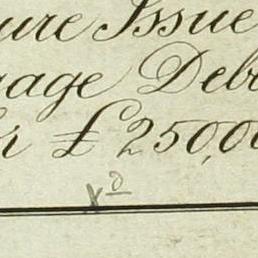 ure Issue
gage Debe
r £250,00
x d